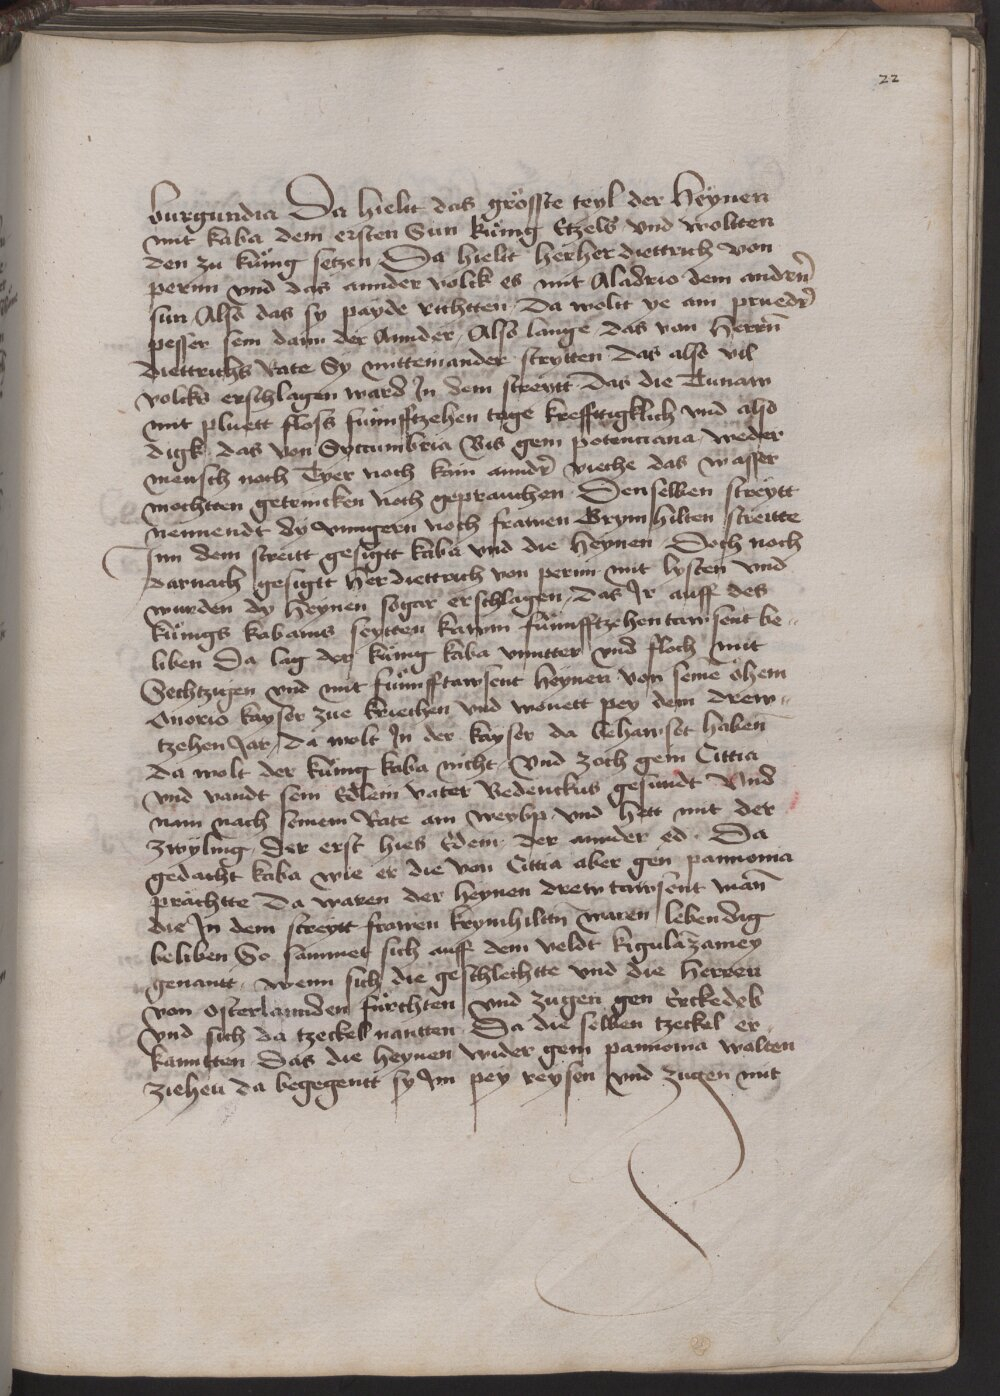 22
burgundia Da hielt das grösste teyl der Heynen
mit kaba dem ersten Sun kung Etzels vnd wolten
den zu kung setzen Da hielt herher diettrich von
pernn vnd das annder volck es mit Aladrio dem andrn
sun Also das sy payde richtten Da wolt ye ain pruedr
pesser sein dann der Annder Also lange das von Herrn
Diettrichs Rate Sy mitteinander strytten Das also vil
volcks erschlagen ward In dem streytt Das die Tunaw
mit pluett floss funfftzehen tage krefftigklich vnd also
digk das von Siccumbria Bis gein potenciana weder
mensch noch Tyer noch kain anndr vieche das wasser
mochtten getrincken noch geprauchen Denselben streytt
nennendt dy vnngern noch frawen Crymhilten streitte
Inn dem streitt gesigtt kaba vnd die Heynen Doch noch
darnach gesigtt Her diettrich von pernn mit lysten vnd
wurden dy Heynen sogar erschlagen Das Ir auff des
kunigs kabanis seytten kawm funfftzehen tawsent be-
liben Da lag der kung kaba vnntter vnd floch mit
Sechtzigen vnd mit funfftawsent Heynen von seine öhem
Onorio kayser zue kriechen vnd wonett pey dem drew-
tzehen Jar Da wolt In der kayser da behawset haben
da wolt der kung kaba nicht vnd zoch gein Cittia
vnd vandt sein Edlein vater Bedenckus gesundt Und
nam nach seinem Rate ain weybp vnd Hett mit der
zwyling Der erst hies Edem Der annder ed Da
gedacht kaba wie er die von Cittia aber gen pannonia
prächtte Da waren der Heynen drew tawsent man
die In dem streytt frawen krymhiltn waren lebendig
beliben So sammet sich auff dem veldt kigulazamey
genantt wenn sich die geschlechtte vnd die Herren
von osterlannden fürchten vnd zugen gen Erckedeb
Vnd sich da tzeckel nantten Da die selben tzeckel er-
kanntten Das die Heynen wider gein pannonia wolten
ziehen da begegentt sy Im pey reysen vnd zugen mit